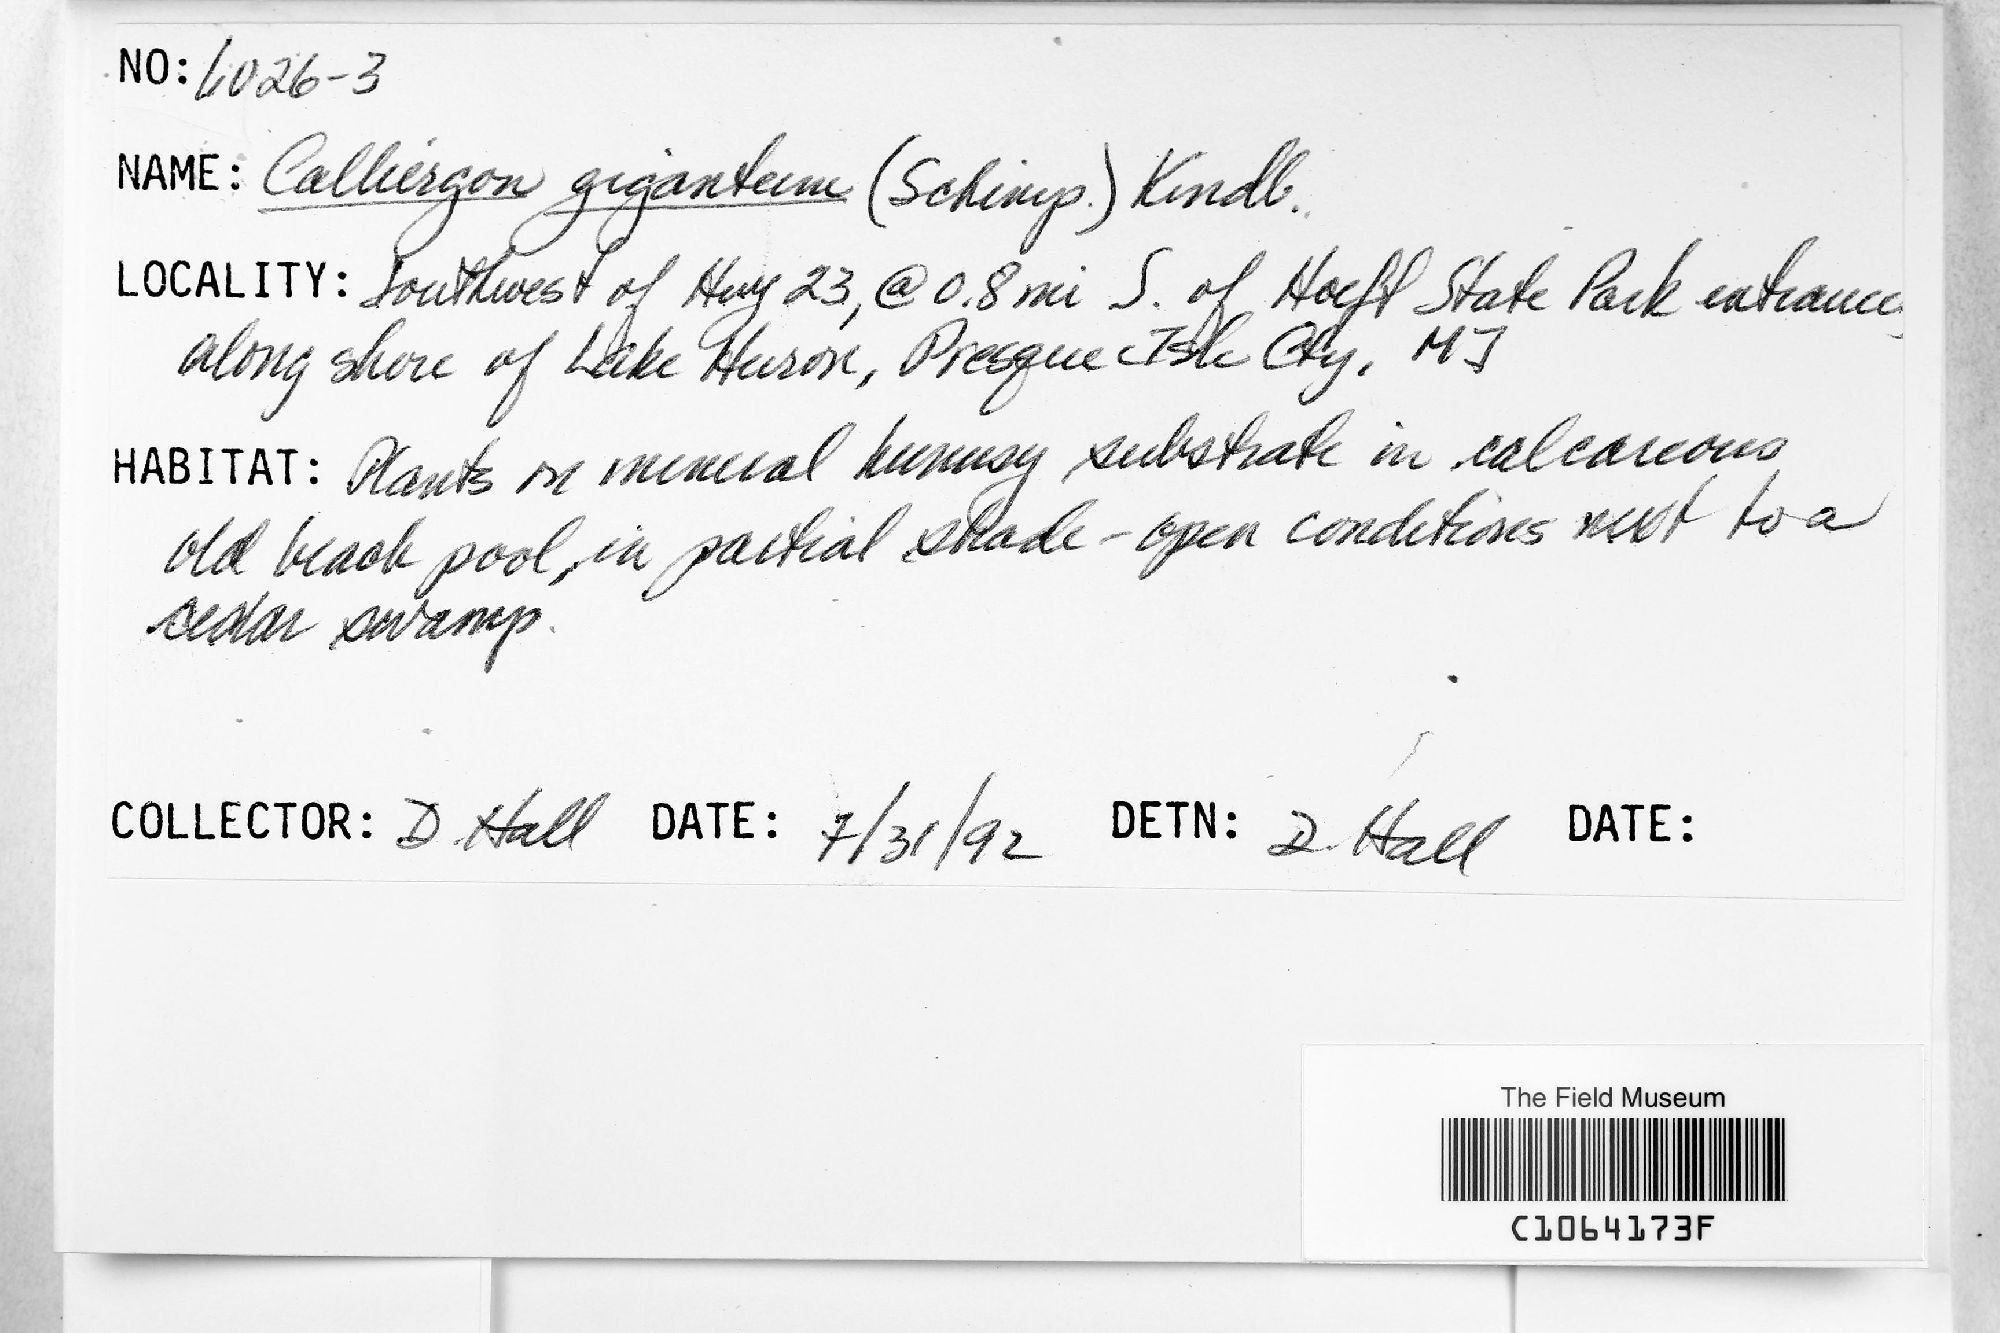 NO: 6026-3
NAME: Calliergon giganteum (Schimp.) Kindb.
LOCALITY: Southwest of Hwy 23, @ 0.8 mi S. of Hoeft State Park entrance,
along shore of Lake Huron, Presque Isle Cty. MI
HABITAT: Plants on mineral hummsy substrate in calcareous
old beach pool, in partial shade-open conditions next to a
cedar swamp.
COLLECTOR: D. Hall DATE: 7/31/92 DETN: D. Hall DATE:
The Field Museum
C1064173F